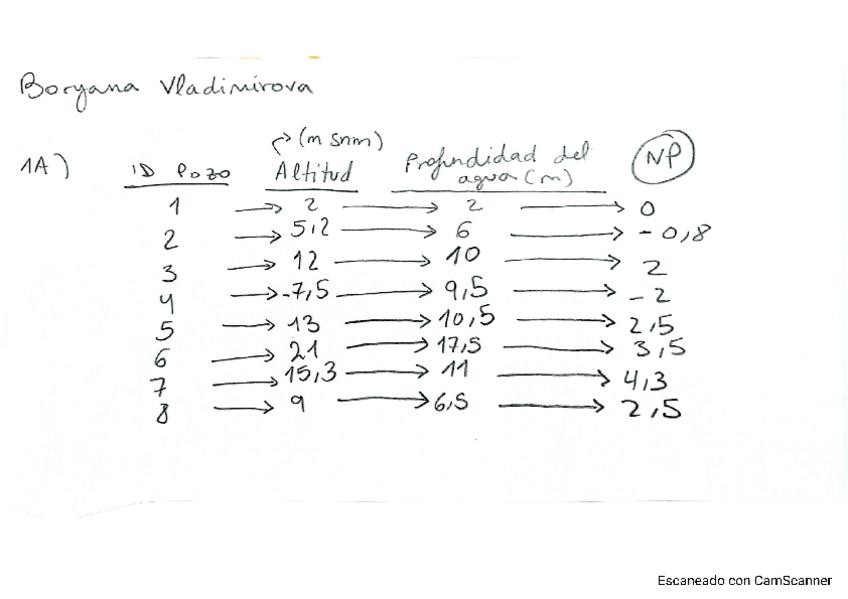 Boryana Vladimirova
1A)
ID Pozo → (m snm) Altitud Profundidad del agua (m) NP
1 → 2 → 2 → 0
2 → 5,2 → 6 → -0,8
3 → 12 → 10 → 2
4 → -7,5 → 9,5 → -2
5 → 13 → 10,5 → 2,5
6 → 21 → 17,5 → 3,5
7 → 15,3 → 11 → 4,3
8 → 9 → 6,5 → 2,5
Escaneado con CamScanner